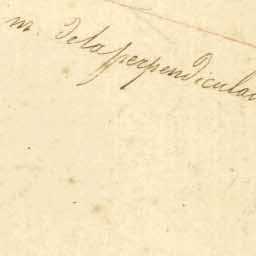 m. De la perpendicular